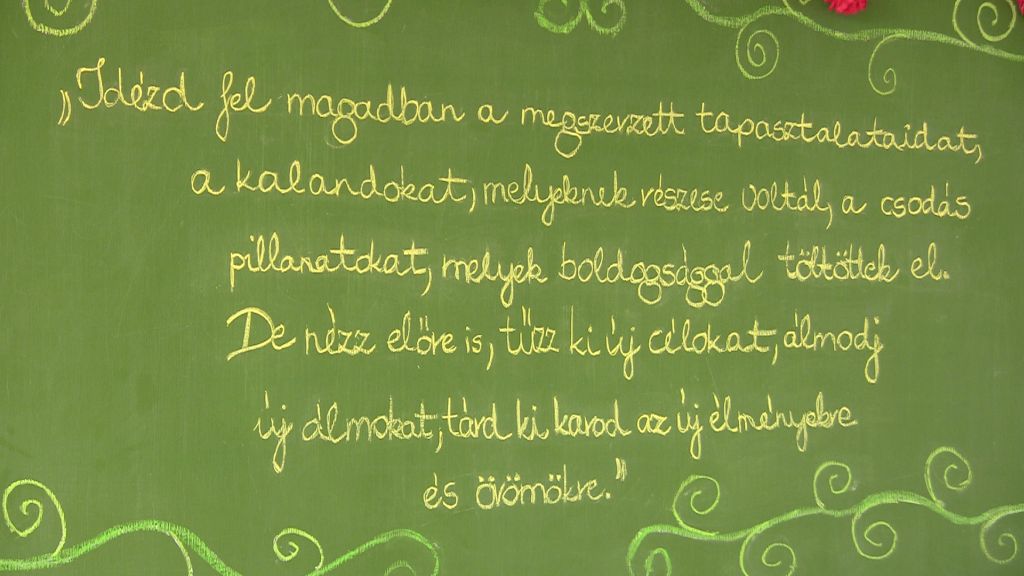 „Idézd fel magadban a megszerzett tapasztalataidat,
a kalandokat, melyeknek részese voltál, a csodás
pillanatokat, melyek boldogsággal töltöttek el.
De nézz előre is, tűzz ki új célokat, álmodj
új álmokat, tárd ki karod az új élményekre
és örömökre."